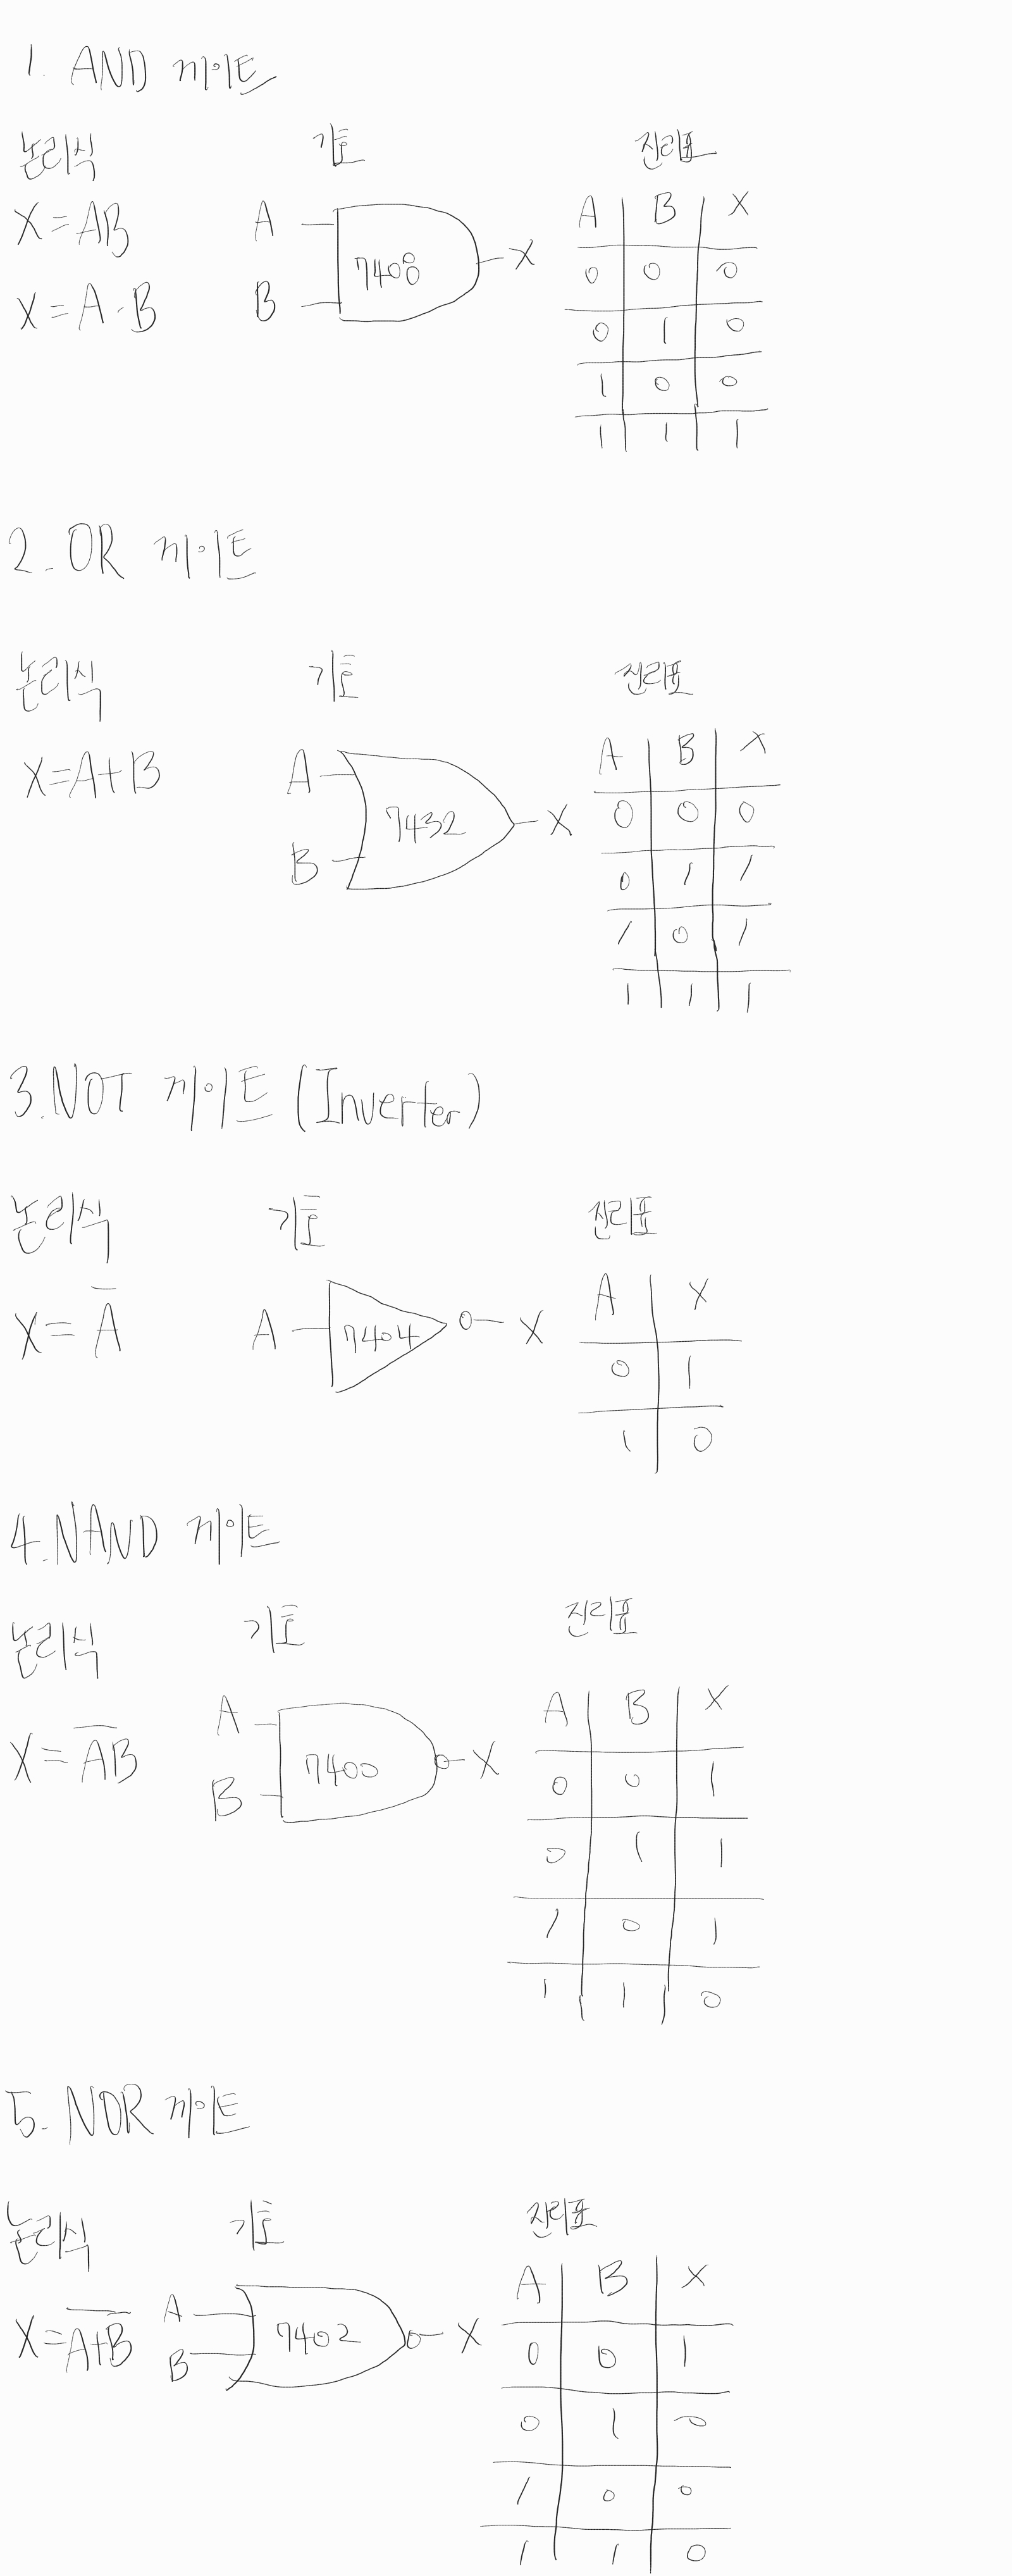 1. AND 게이트
논리식 기호 진리표
X=AB
X=A·B
A
B
7408
X
A B X
0 0 0
0 1 0
1 0 0
1 1 1
2. OR 게이트
논리식 기호 진리표
X=A+B
A
B
7432
X
A B X
0 0 0
0 1 1
1 0 1
1 1 1
3. NOT 게이트 (Inverter)
논리식 기호 진리표
X=A̅
A
7404
X
A X
0 1
1 0
4. NAND 게이트
논리식 기호 진리표
X=A̅B̅
A
B
7400
X
A B X
0 0 1
0 1 1
1 0 1
1 1 0
5. NOR 게이트
논리식 기호 진리표
X=A̅+̅B̅
A
B
7402
X
A B X
0 0 1
0 1 0
1 0 0
1 1 0